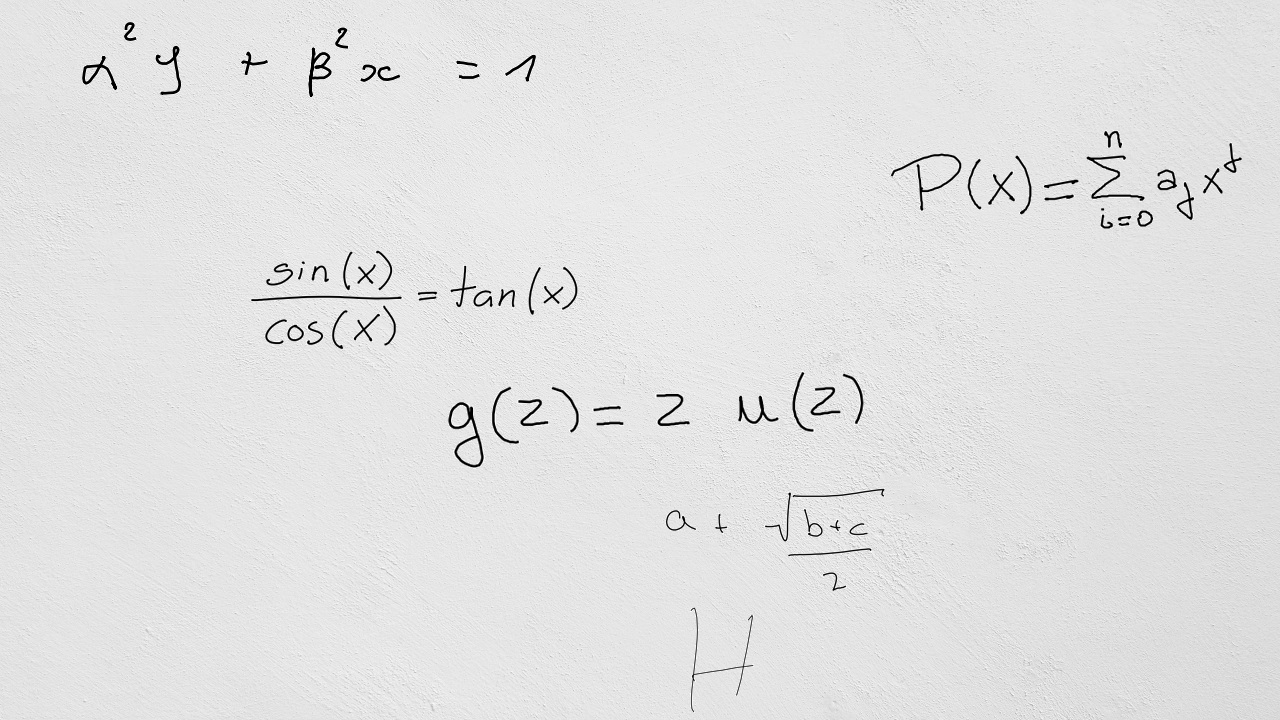 α² y + β² x = 1
P(x) = ∑_{i=0}^{n} a_j x^j
sin(x) / cos(x) = tan(x)
g(z) = z u(z)
a + √(b+c) / 2
H